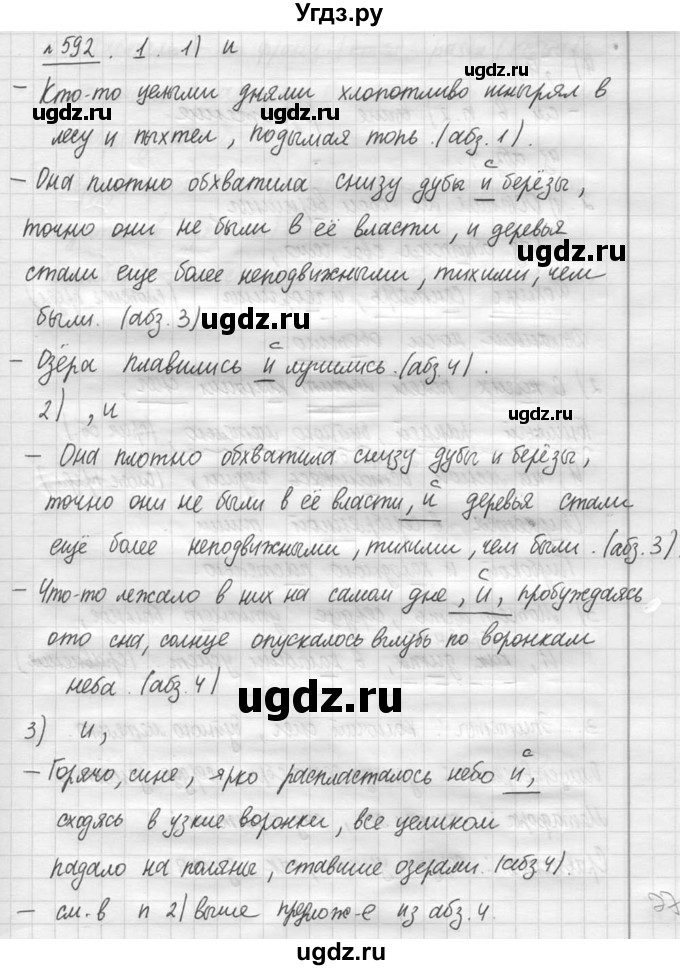 Угдз.ру
№592. 1. 1) и
- Кто-то целыми днями хлопотливо шнырял в
лесу и пыхтел, подымая топь. (абз. 1).
- Она плотно обхватила снизу дубы и берёзы,
точно они не были в её власти, и деревья
стали еще более неподвижными, тихими, чем
были. (абз. 3)
- Озёра плавились и лучились. (абз. 4).
2) , и
- Она плотно обхватила снизу дубы и берёзы,
точно они не были в её власти, и деревья стали
ещё более неподвижными, тихими, чем были. (абз. 3).
- Что-то лежало в них на самом дне, и, пробуждаясь
ото сна, солнце опускалось вглубь по воронкам
неба. (абз. 4)
3) и,
- Горячо, сине, ярко распласталось небо и,
сходясь в узкие воронки, все целиком
падало на поляны, ставшие озерами. (абз 4).
- см. в п 2) выше предлож-е из абз. 4.
ugdz.ru
ugdz.ru
ugdz.ru
ugdz.ru
ugdz.ru
ugdz.ru
ugdz.ru
ugdz.ru
ugdz.ru
ugdz.ru
ugdz.ru